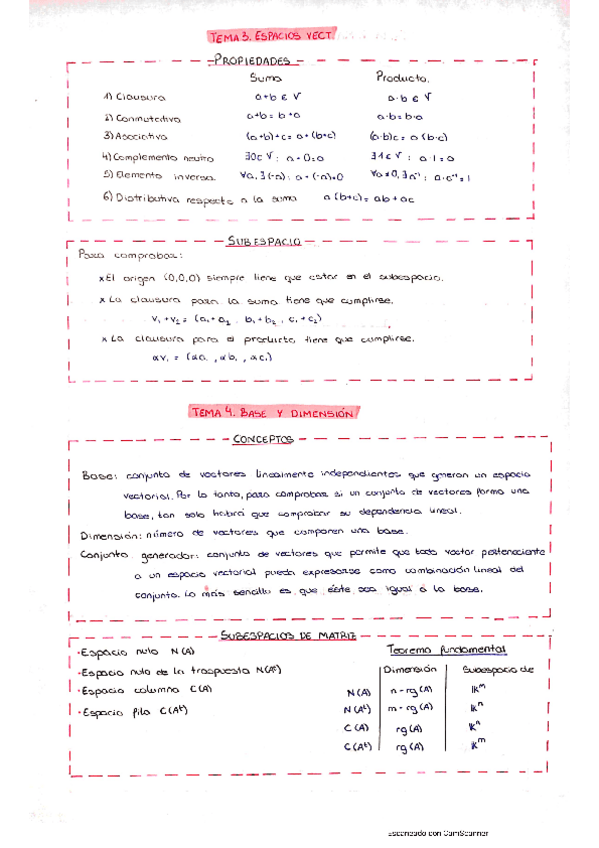 TEMA 3. ESPACIOS VECT.
PROPIEDADES
Suma Producto.
1) Clausura a+b ∈ V a·b ∈ V
2) Conmutativa a+b = b+a a·b = b·a
3) Asociativa (a+b)+c = a+(b+c) (a·b)c = a(b·c)
4) Complemento neutro ∃0∈V : a+0=a ∃1∈V : a·1=a
5) Elemento inverso ∀a, ∃(-a) : a+(-a)=0 ∀a≠0, ∃a⁻¹ : a·a⁻¹=1
6) Distributiva respecto a la suma a(b+c) = ab+ac
SUBESPACIO
Para comprobar:
x El origen (0,0,0) siempre tiene que estar en el subespacio.
x La clausura para la suma tiene que cumplirse.
v₁+v₂ = (a₁+a₂, b₁+b₂, c₁+c₂)
x La clausura para el producto tiene que cumplirse.
αv₁ = (αa₁, αb₁, αc₁)
TEMA 4. BASE Y DIMENSIÓN
CONCEPTOS
Base: conjunto de vectores linealmente independientes que generan un espacio
vectorial. Por lo tanto, para comprobar si un conjunto de vectores forma una
base, tan solo habrá que comprobar su dependencia lineal.
Dimensión: número de vectores que componen una base.
Conjunto generador: conjunto de vectores que permite que todo vector perteneciente
a un espacio vectorial pueda expresarse como combinación lineal del
conjunto. Lo más sencillo es que éste sea igual a la base.
SUBESPACIOS DE MATRIZ
·Espacio nulo N(A) Teorema fundamental
·Espacio nulo de la traspuesta N(Aᵗ) Dimensión Subespacio de
·Espacio columna C(A) N(A) n-rg(A) 𝕂ᵐ
·Espacio fila C(Aᵗ) N(Aᵗ) m-rg(A) 𝕂ⁿ
C(A) rg(A) 𝕂ⁿ
C(Aᵗ) rg(A) 𝕂ᵐ
Escaneado con CamScanner